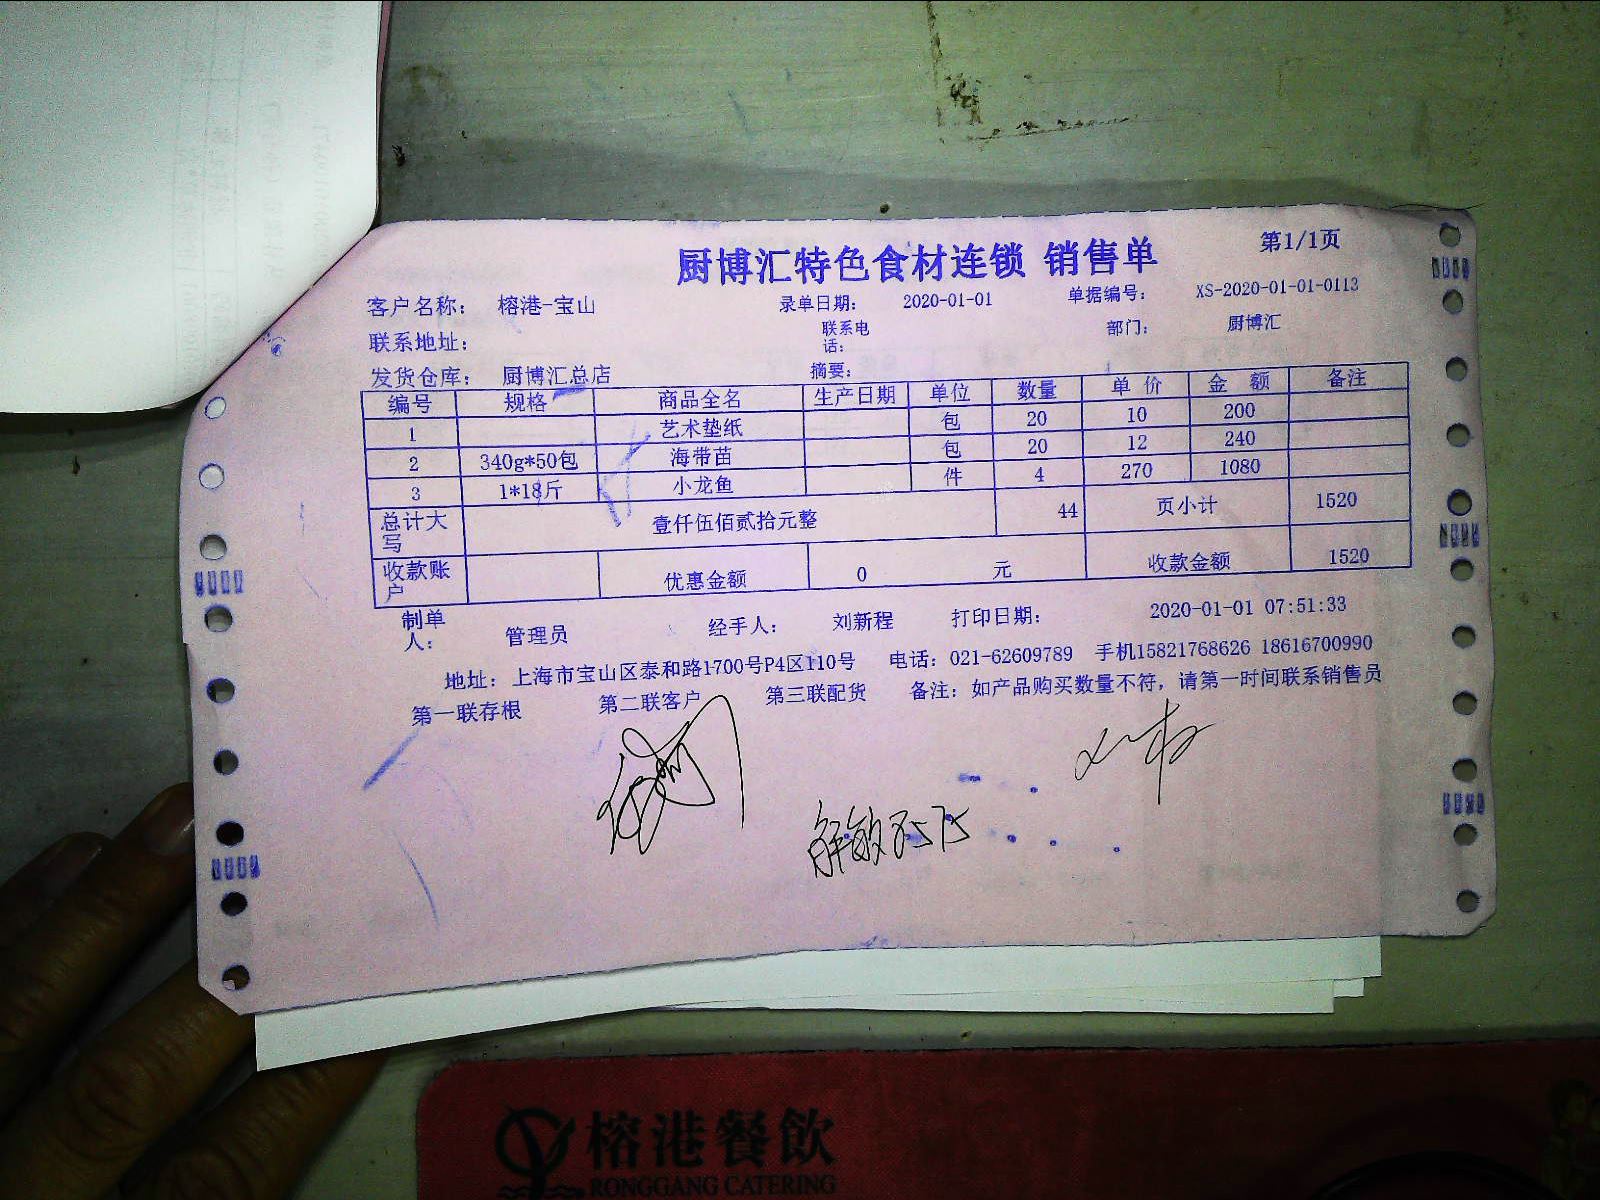 厨博汇特色食材连锁 销售单 第1/1页
客户名称： 榕港-宝山 录单日期： 2020-01-01 单据编号： XS-2020-01-01-0113
联系地址： 联系电话： 部门： 厨博汇
发货仓库： 厨博汇总店 摘要：
编号 规格 商品全名 生产日期 单位 数量 单价 金额 备注
1 艺术垫纸 包 20 10 200
2 340g*50包 海带苗 包 20 12 240
3 1*18斤 小龙鱼 件 4 270 1080
总计大写 壹仟伍佰贰拾元整 44 页小计 1520
收款账户 优惠金额 0 元 收款金额 1520
制单人： 管理员 经手人： 刘新程 打印日期： 2020-01-01 07:51:33
地址：上海市宝山区泰和路1700号P4区110号 电话：021-62609789 手机15821768626 18616700990
第一联存根 第二联客户 第三联配货 备注：如产品购买数量不符，请第一时间联系销售员
榕港餐飲
RONGGANG CATERING